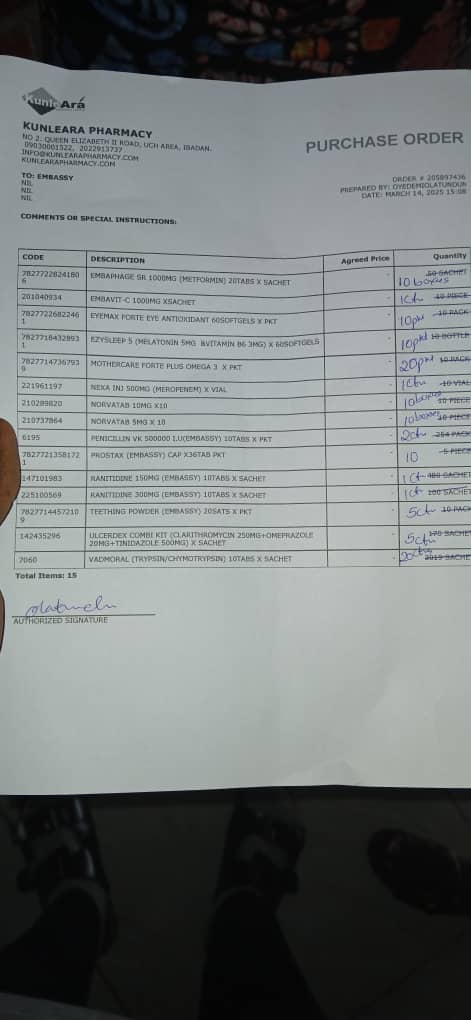 KunleAra
KUNLEARA PHARMACY
NO 2, QUEEN ELIZABETH II ROAD, UCH AREA, IBADAN.
09030001522, 2022913737
INFO@KUNLEARAPHARMACY.COM
KUNLEARAPHARMACY.COM
PURCHASE ORDER
ORDER # 205897436
PREPARED BY: OYEDEMIOLATUNDUN
DATE: MARCH 14, 2025 15:08
TO: EMBASSY
NIL
NIL
NIL
COMMENTS OR SPECIAL INSTRUCTIONS:
CODE DESCRIPTION Agreed Price Quantity
7827722824180 EMBAPHAGE SR 1000MG (METFORMIN) 20TABS X SACHET - 50 SACHET
6 10 boxes
201040934 EMBAVIT-C 1000MG XSACHET - 1Ctn 10 PIECE
7827722682246 EYEMAX FORTE EYE ANTIOXIDANT 60SOFTGELS X PKT - 10pkt 10 PACK
1
7827718432893 EZYSLEEP 5 (MELATONIN 5MG BVITAMIN B6 3MG) X 60SOFTGELS - 10pkt 10 BOTTLE
1
7827714736793 MOTHERCARE FORTE PLUS OMEGA 3 X PKT - 20pkt 10 PACK
9
221961197 NEXA INJ 500MG (MEROPENEM) X VIAL - 1Ctn 10 VIAL
210289820 NORVATAB 10MG X10 - 10boxes 10 PIECE
210737864 NORVATAB 5MG X 10 - 10boxes 10 PIECE
6195 PENICILLIN VK 500000 I.U(EMBASSY) 10TABS X PKT - 2Ctn 254 PACK
7827721358172 PROSTAX (EMBASSY) CAP X36TAB PKT - 10 5 PIECE
1
147101983 RANITIDINE 150MG (EMBASSY) 10TABS X SACHET - 1Ct 480 SACHET
225100569 RANITIDINE 300MG (EMBASSY) 10TABS X SACHET - 1Ct 100 SACHET
7827714457210 TEETHING POWDER (EMBASSY) 20SATS X PKT - 5ctn 10 PACK
9
142435296 ULCERDEX COMBI KIT (CLARITHROMYCIN 250MG+OMEPRAZOLE - 5ctn 170 SACHET
20MG+TINIDAZOLE 500MG) X SACHET
7060 VADMORAL (TRYPSIN/CHYMOTRYPSIN) 10TABS X SACHET - 20ctns 2015 SACHE
Total Items: 15
AUTHORIZED SIGNATURE